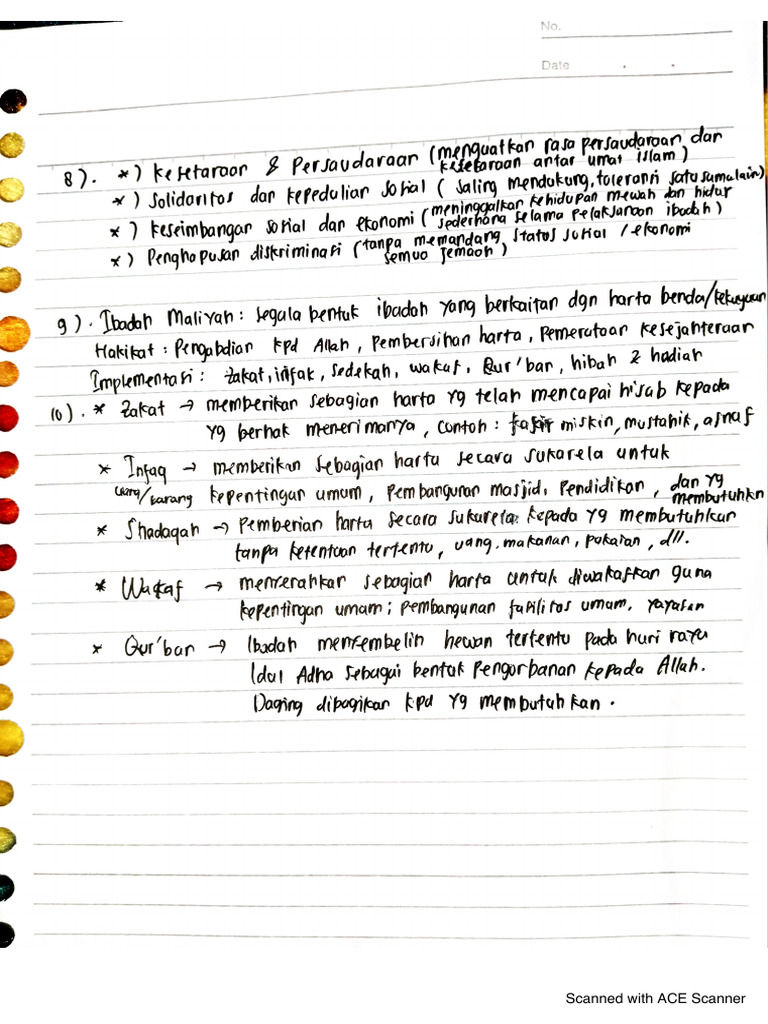 No.
Date . .
8). *) Kesetaraan & Persaudaraan (menguatkan rasa persaudaraan dan
kesetaraan antar umat islam)
*) Solidaritas dan kepedulian sosial (saling mendukung, toleransi satu sama lain)
*) Keseimbangan sosial dan ekonomi (meninggalkan kehidupan mewah dan hidup
sederhana selama pelaksanaan ibadah)
*) Penghapusan diskriminasi (tanpa memandang status sosial / ekonomi
semua jemaah)
9). Ibadah Maliyah : segala bentuk ibadah yang berkaitan dgn harta benda/kekayaan
Hakikat : Pengabdian kpd Allah, Pembersihan harta, pemerataan kesejahteraan
Implementasi : Zakat, infak, sedekah, wakaf, Qur'ban, hibah & hadiah
10). * Zakat → memberikan sebagian harta yg telah mencapai hisab kepada
yg berhak menerimanya, contoh : miskin, mustahik, asnaf
* Infaq → memberikan sebagian harta secara sukarela untuk
uang/barang kepentingan umum, pembangunan masjid, Pendidikan, dan yg
membutuhkn
* Shadaqah → Pemberian harta secara sukarela kepada yg membutuhkan
tanpa ketentuan tertentu, uang, makanan, pakaian, dll.
* Wakaf → menyerahkan sebagian harta untuk diwakafkan guna
kepentingan umum; pembangunan fasilitas umum, yayasan
* Qur'ban → Ibadah menyembelih hewan tertentu pada hari raya
Idul Adha sebagai bentuk pengorbanan kepada Allah.
Daging dibagikan kpd yg membutuhkan.
Scanned with ACE Scanner